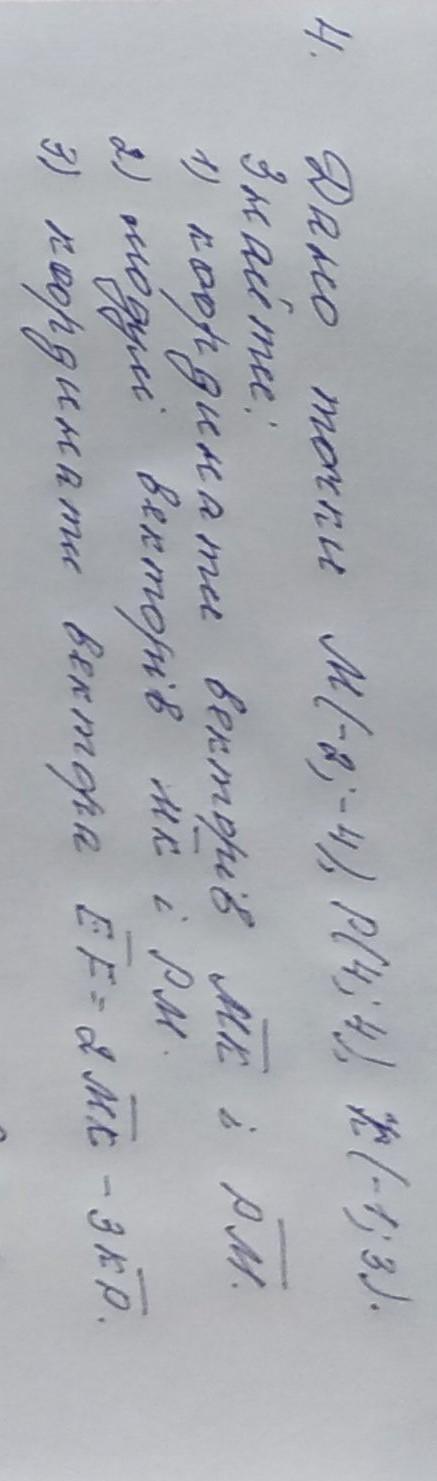 4. Дано точки M(-2; -4), P(4; 4), K(-1; 3).
Знайти:
1) координати векторів MK і PM.
2) модулі векторів MK і PM.
3) координати вектора EF = 2MK - 3KP.